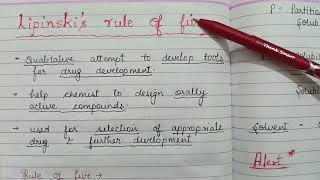 Lipinski's rule of fiv
→ Qualitative attempt to develop tools
for drug development.
→ help chemist to design orally
active compounds.
→ used for selection of appropriate
drug & further development
Rule of five →
P = Partiti
solub
solubi
solvent =
Alert *